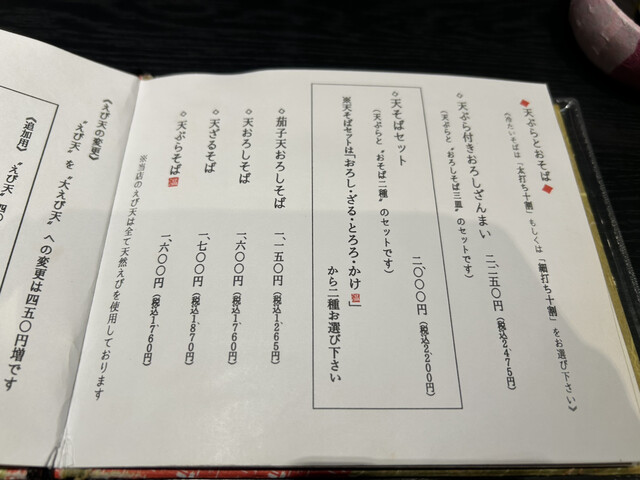 ◆天ぷらとおそば◆
《冷たいそばは「太打ち十割」もしくは「細打ち十割」をお選び下さい》
◇天ぷら付きおろしざんまい 二、二五〇円(税込2,475円)
(天ぷらと〝おろしそば三皿〟のセットです)
◇天そばセット 二、〇〇〇円(税込2,200円)
(天ぷらと〝おそば二種〟のセットです)
※天そばセットは「おろし・ざる・とろろ・かけ温」
から二種お選び下さい
◇茄子天おろしそば 一、一五〇円(税込1,265円)
◇天おろしそば 一、六〇〇円(税込1,760円)
◇天ざるそば 一、七〇〇円(税込1,870円)
◇天ぷらそば温 一、六〇〇円(税込1,760円)
※当店のえび天は全て天然えびを使用しております
《えび天の変更》
〝えび天〟を〝大えび天〟への変更は四五〇円増です
《追加用》
〝えび天〟四〇